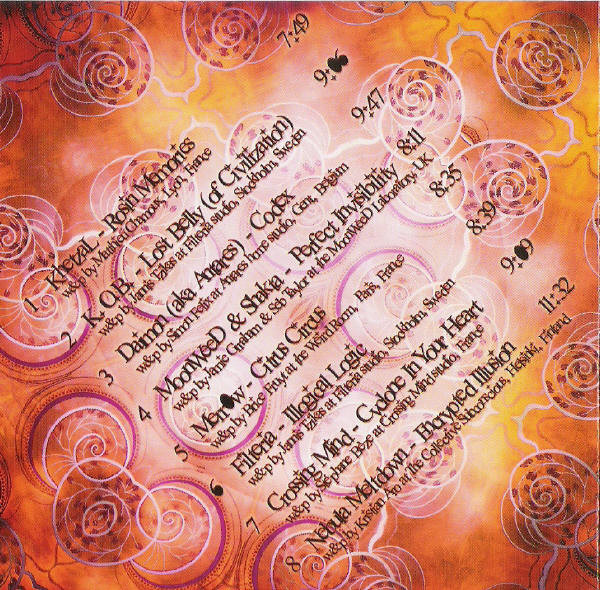 1 - - Robin Memories 7:49
w&p by Lyon, France
2 - K.O.B. - Lost Belly (of Civilization)
w&p by Jannis Tzikas at Filteria studio, Stockholm, Sweden
3 (aka Antares) - Codex 9:47
w&p by at Antares studio, Gent, Belgium
4 MoonweeD & Shakta - Perfect Invisibility 8:11
w&p by Jamie Graham & Seb Taylor at the MoonWeeD Laboratory, UK
5 - Citrus Circus 8:35
w&p by at the Room, Paris, France
Filteria - Illogical Logic 8:39
w&p by Jannis Tzikas at Filteria studio, Stockholm, Sweden
7 Crossing Mind - in Your Heart
w&p by at Crossing Mind studio, France
8 Nebula Meltdown - Encrypted Illusion 11:32
w&p by Kristian at the Collective Helsinki, Finland